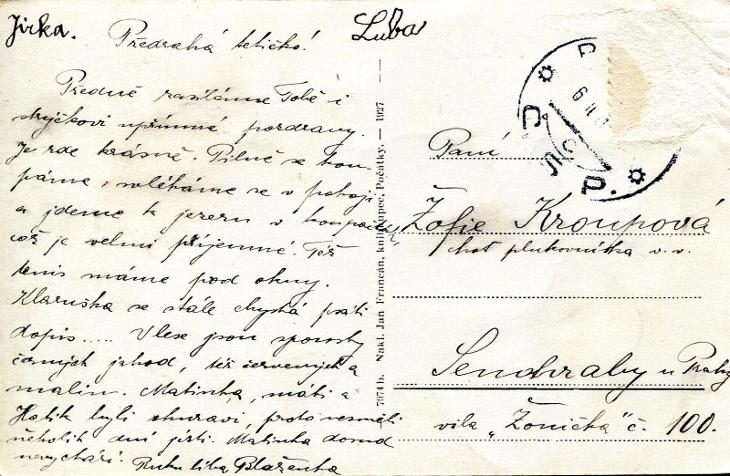 Jirka.
Luba
Předrahá tetičko!
Předně zasíláme Tobě i
strýčkovi upřímné pozdravy.
Je zde krásně. Pilně se kou-
páme, svlékáme se v pokoji
a jdeme k jezeru v koupačkách
což je velmi příjemné. Též
tenis máme pod okny.
Klaruška se stále chystá psáti
dopis..... V lese jsou spousty
černých jahod, též červených a
malin. Matinka, máti a
byli churaví, proto nesměli
několik dní jísti. Matinka domů
nevychází. Ruku líbá Blaženka
7074 b. Nakl. Jan Francán, knihkupec, Počátky. — 1927
Paní
Žofie Kroupová
choť plukovníka v. v.
Senohraby u Prahy
vila „Žonička" č. 100.